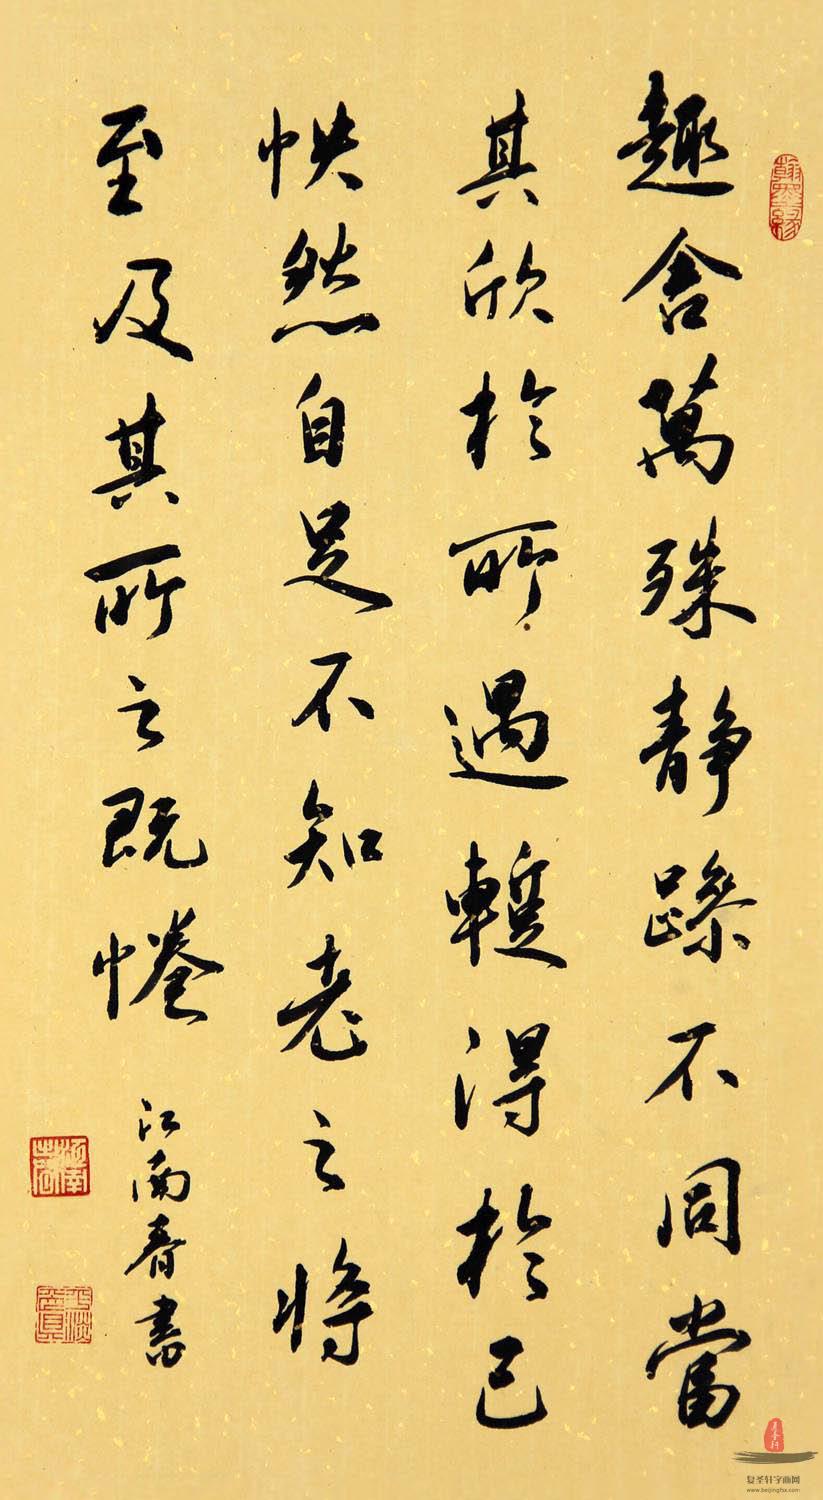 趣舍萬殊靜躁不同當
其欣於所遇蹔得於己
怏然自足不知老之將
至及其所之既惓
江南春書
复圣轩字画网
www.beijingfsx.com